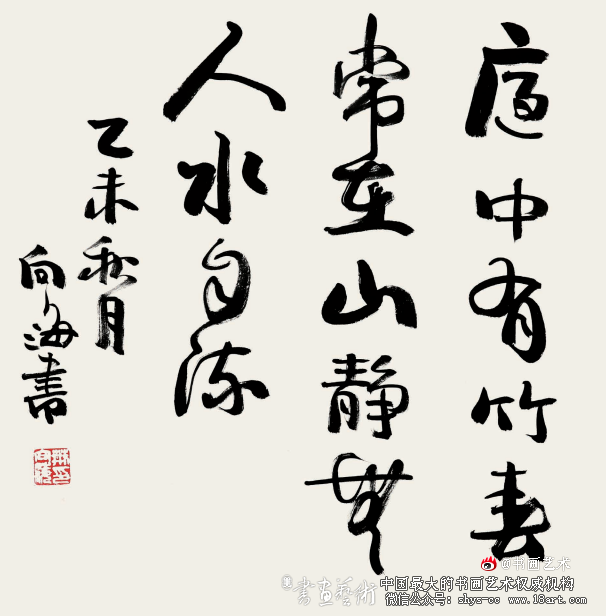 庭中有竹春
常在山静無
人水自流
乙未秋月
向海書
@书画艺术
書畫藝術
中国最大的书画艺术权威机构
微信公众号: shys-cc www.18art.com